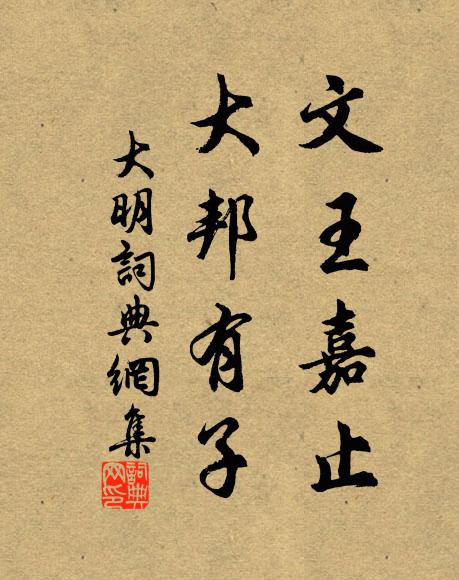 文王嘉止
大邦有子
大明詞典網集
詞典
网印